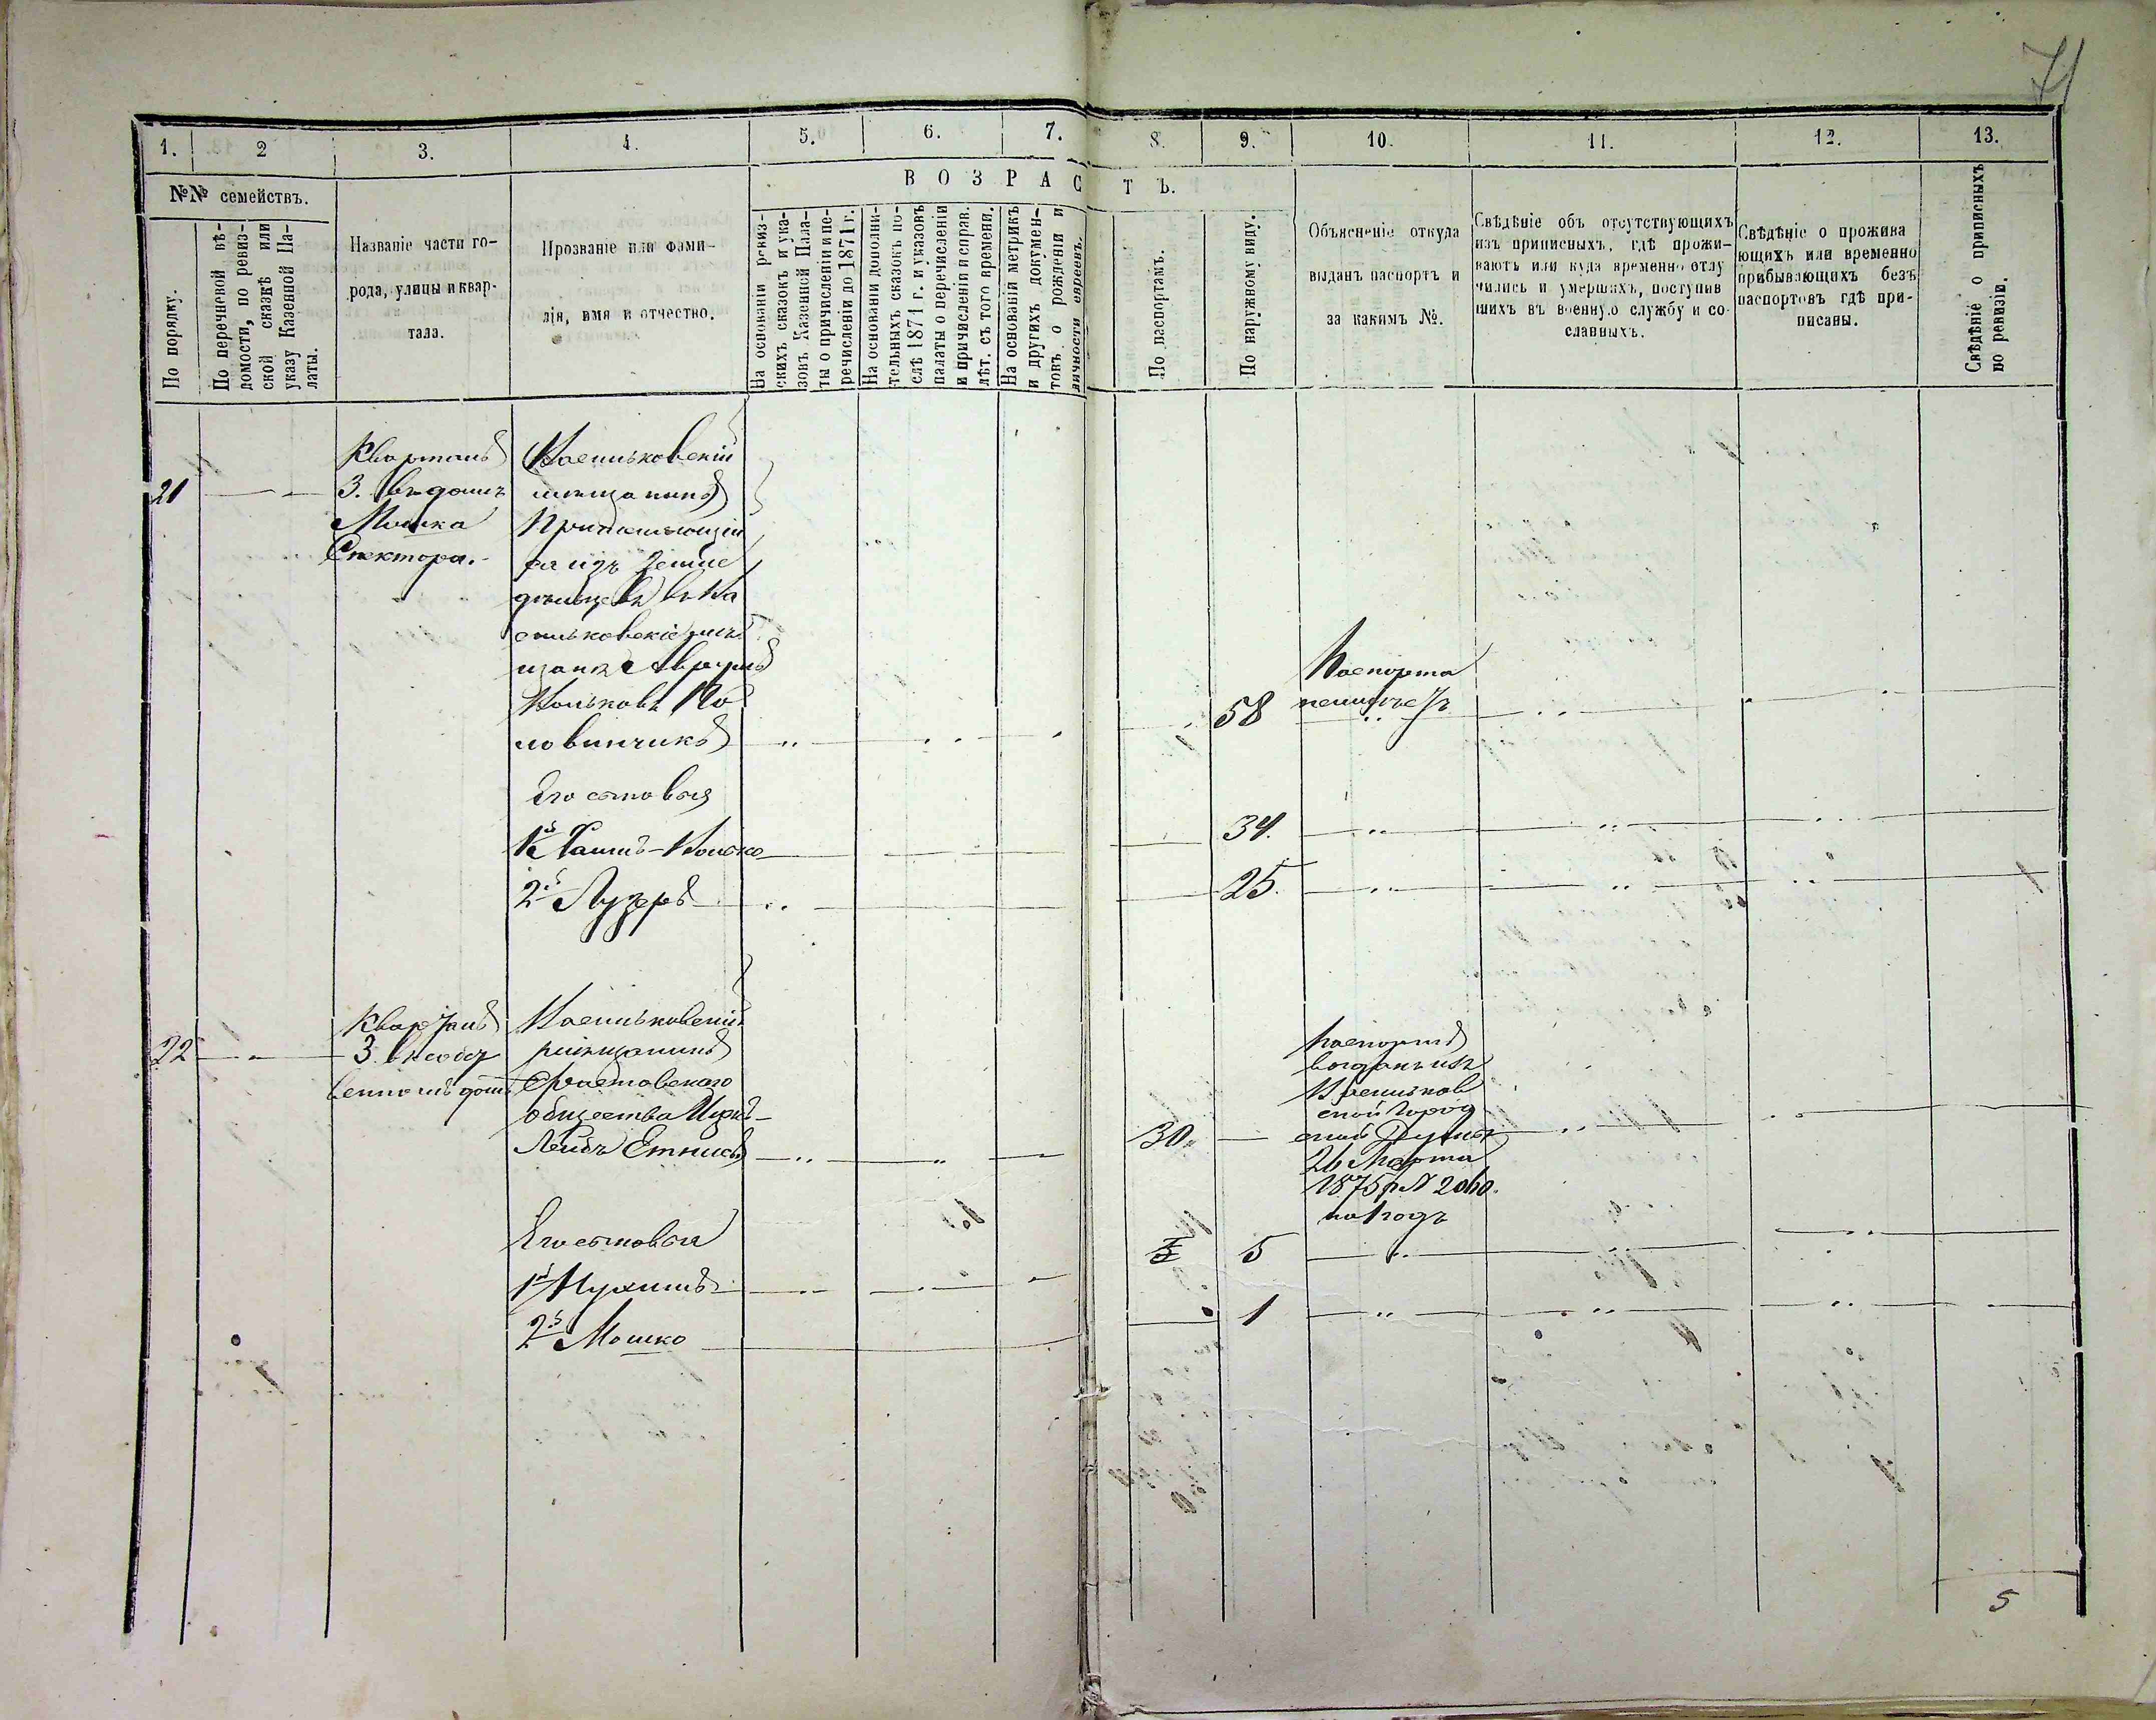 71
1. 2 3. 4. 5. 6. 7. 8. 9. 10. 11. 12. 13.
№№ семействъ.
По порядку.
По перечневой вѣ-
домости, по ревиз-
ской сказкѣ или
указу Казенной Па-
латы.
Названіе части го-
рода, улицы и квар-
тала.
Прозваніе или фами-
лія, имя и отчество.
ВОЗРАСТЪ.
На основаніи ревиз-
скихъ сказокъ и ука-
зовъ Казенной Пала-
ты о причисленіи и пе-
речисленіи до 1871 г.
На основаніи дополни-
тельныхъ сказокъ по-
слѣ 1871 г. и указовъ
палаты о перечисленіи
и причисленіи и справ.
лѣт. съ того времени.
На основаніи метрикъ
и другихъ докумен-
товъ о рожденіи и
личности евреевъ.
По паспортамъ.
По наружному виду.
Объясненіе откуда
выданъ паспортъ и
за какимъ №.
Свѣдѣніе объ отсутствующихъ
изъ приписныхъ, гдѣ прожи-
ваютъ или куда временно отлу
чились и умершихъ, поступив
шихъ въ военную службу и со-
сланныхъ.
Свѣдѣніе о прожива
ющихъ или временно
прибывающихъ безъ
паспортовъ гдѣ при-
писаны.
Свѣдѣніе о приписныхъ
по ревизіи.
21
Кварталъ
3. въ домѣ
Мошка
Спектора.
Васильковскій
мѣщанинъ
Причисляющій
ся изъ Земле
дѣльцевъ въ Ва
сильковскіе мѣ
щане Аврумъ
Вольковъ По
ловинчикъ
58
Паспорта
неимѣетъ
Его сыновья
1й Хаимъ-Волько
34.
2й Лузеръ
25.
22
Кварталъ
3. въ собст
венномъ домѣ
Васильковскій
мѣщанинъ
Фастовского
общества Ицкъ-
Лейбъ Етнисъ
30
Паспортъ
выданъ изъ
Васильков
ской Город
ской Думы
26 Марта
1875 г. № 2060.
на 1 годъ
Его сыновья
1й Нухимъ
5 5
2й Мошко
1
5